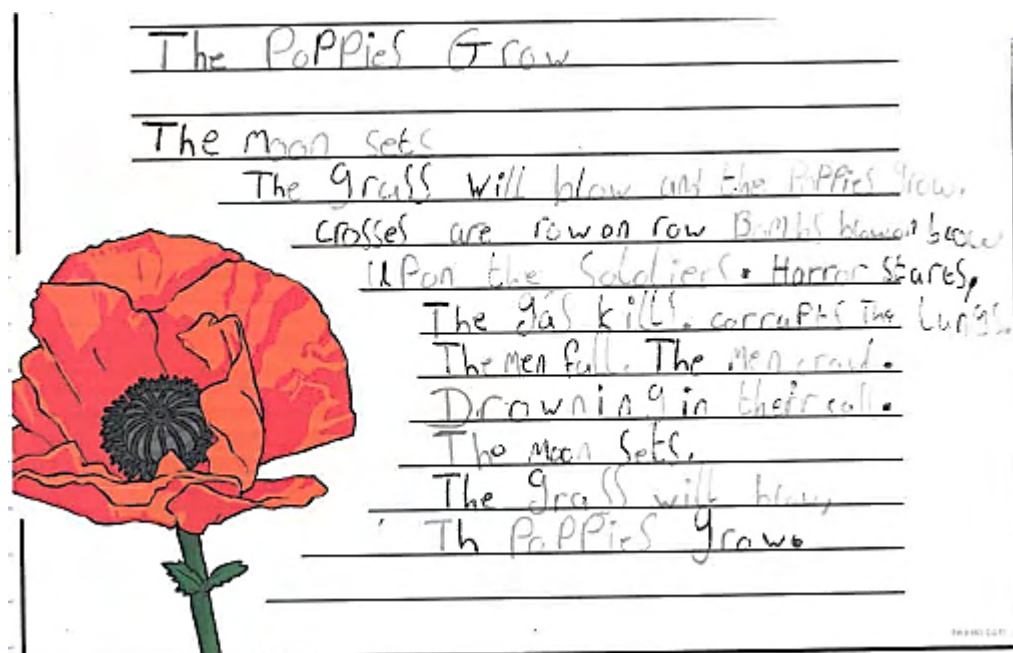 The Poppies Grow
The moon sets
The grass will blow and the Poppies grow.
crosses are row on row Bombs blow on blow
upon the Soldiers. Horror stares,
The gas kills. corrupts The Lungs.
The men fall. The Men crawl.
Drowning in their call.
The moon sets.
The grass will blow,
Th Poppies grow.